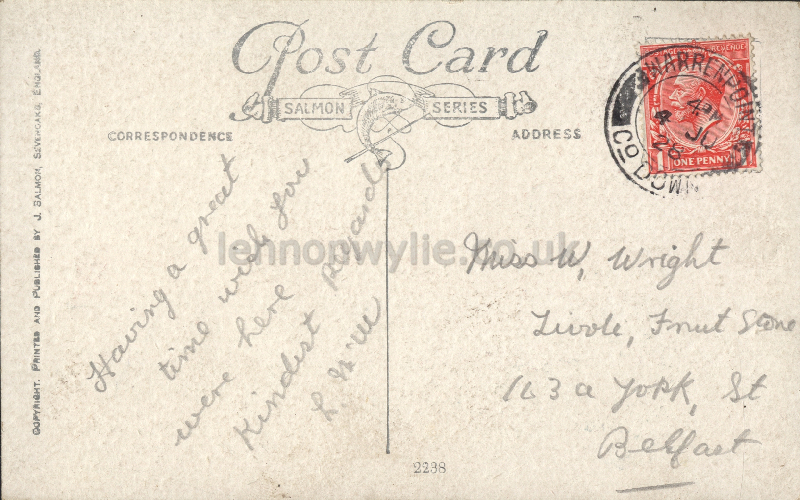 Post Card
SALMON SERIES
CORRESPONDENCE
ADDRESS
COPYRIGHT. PRINTED AND PUBLISHED BY J. SALMON, SEVENOAKS, ENGLAND.
WARRENPOINT
4 PM
4 JU
28
Co DOWN
REVENUE
ONE PENNY
Having a great
time wish you
were here
Kindest Regards
lennonwylie.co.uk
Miss W, Wright
Fruit Store
163a York, St
Belfast
2298